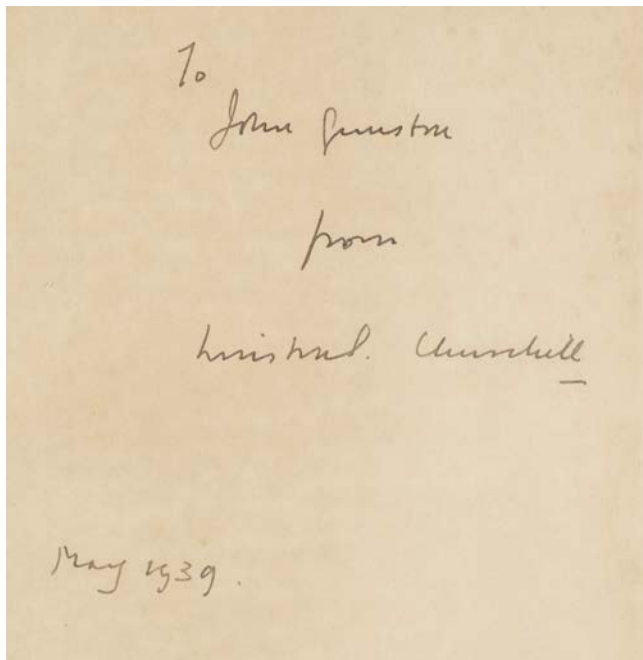 To
John Gunston
from
Winston S. Churchill
May 1939.